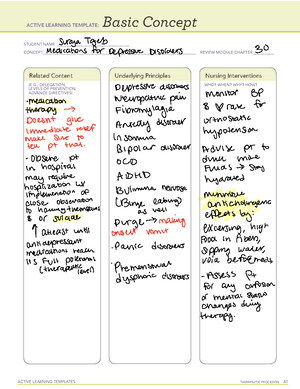 ACTIVE LEARNING TEMPLATE: Basic Concept
STUDENT NAME Suraya Tayeb
CONCEPT Medications for Depressive Disorders REVIEW MODULE CHAPTER 30
Related Content
(E.G., DELEGATION,
LEVELS OF PREVENTION,
ADVANCE DIRECTIVES)
-medication
therapy →
Doesn't give
immediate relief
make sure to
tell pt that.
- Observe pt
in hospital
may require
hospitalization w/
implementation of
close observation
to harming themselves
& or suicide
↑ atleast until
antidepressant
medications reach
its full potential
(therapeutic
level)
Underlying Principles
Depressive disorders
Neuropathic pain
Fibromyalgia
Anxiety disorder
Insomnia
Bipolar disorder
OCD
ADHD
Bulimia nervosa
(Binge eating)
as well
Purge → making
oneself vomit
-Panic disorders
-Premenstrual
dysphoric disorders
Nursing Interventions
WHO? WHEN? WHY? HOW?
Monitor BP
& ♥ rate for
orthostatic
hypotension
Advise pt to
drink more
fluids → stay
hydrated
minimize
anticholinergic
effects by:
Excersing, high
food in fiber,
sipping water,
void before meds
- Assess pt
for any confusion
or mental status
changes during
therapy.
ACTIVE LEARNING TEMPLATES
THERAPEUTIC PROCEDURE A1